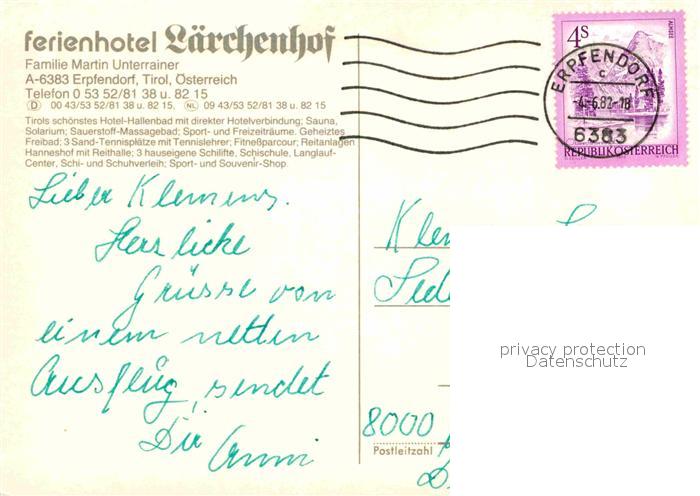 ferienhotel Lärchenhof
Familie Martin Unterrainer
A-6383 Erpfendorf, Tirol, Österreich
Telefon 0 53 52/81 38 u. 82 15
D 00 43/53 52/81 38 u. 82 15. NL 09 43/53 52/81 38 u. 82 15
Tirols schönstes Hotel-Hallenbad mit direkter Hotelverbindung; Sauna,
Solarium; Sauerstoff-Massagebad; Sport- und Freizeiträume. Geheiztes
Freibad; 3 Sand-Tennisplätze mit Tennislehrer; Fitneßparcour; Reitanlagen
Hanneshof mit Reithalle; 3 hauseigene Schilifte, Schischule, Langlauf-
Center, Schi- und Schuhverleih; Sport- und Souvenir-Shop.
4S
ALMSEE
ERPFENDORF
c
-4.-6.82-18
6383
REPUBLIK ÖSTERREICH
Lieber Klemens.
Herzlicke
Grüsse von
einem netten
Ausflug, sendet
Dir
Anni
Klem
8000
Postleitzahl
privacy protection
Datenschutz